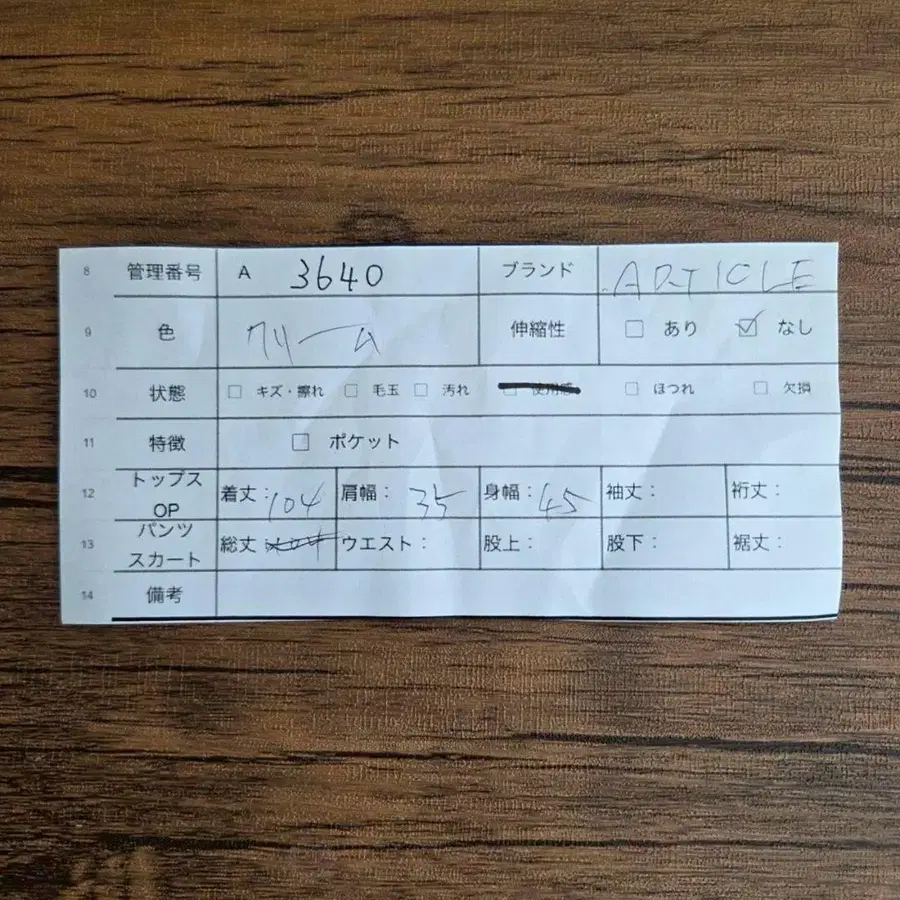 8 管理番号 A 3640 ブランド ARTICLE
9 色 クリーム 伸縮性 □ あり ☑ なし
10 状態 □ キズ・擦れ □ 毛玉 □ 汚れ □ 使用感 □ ほつれ □ 欠損
11 特徴 □ ポケット
12 トップス OP 着丈：104 肩幅：35 身幅：45 袖丈： 裄丈：
13 パンツ スカート 総丈 ウエスト： 股上： 股下： 裾丈：
14 備考